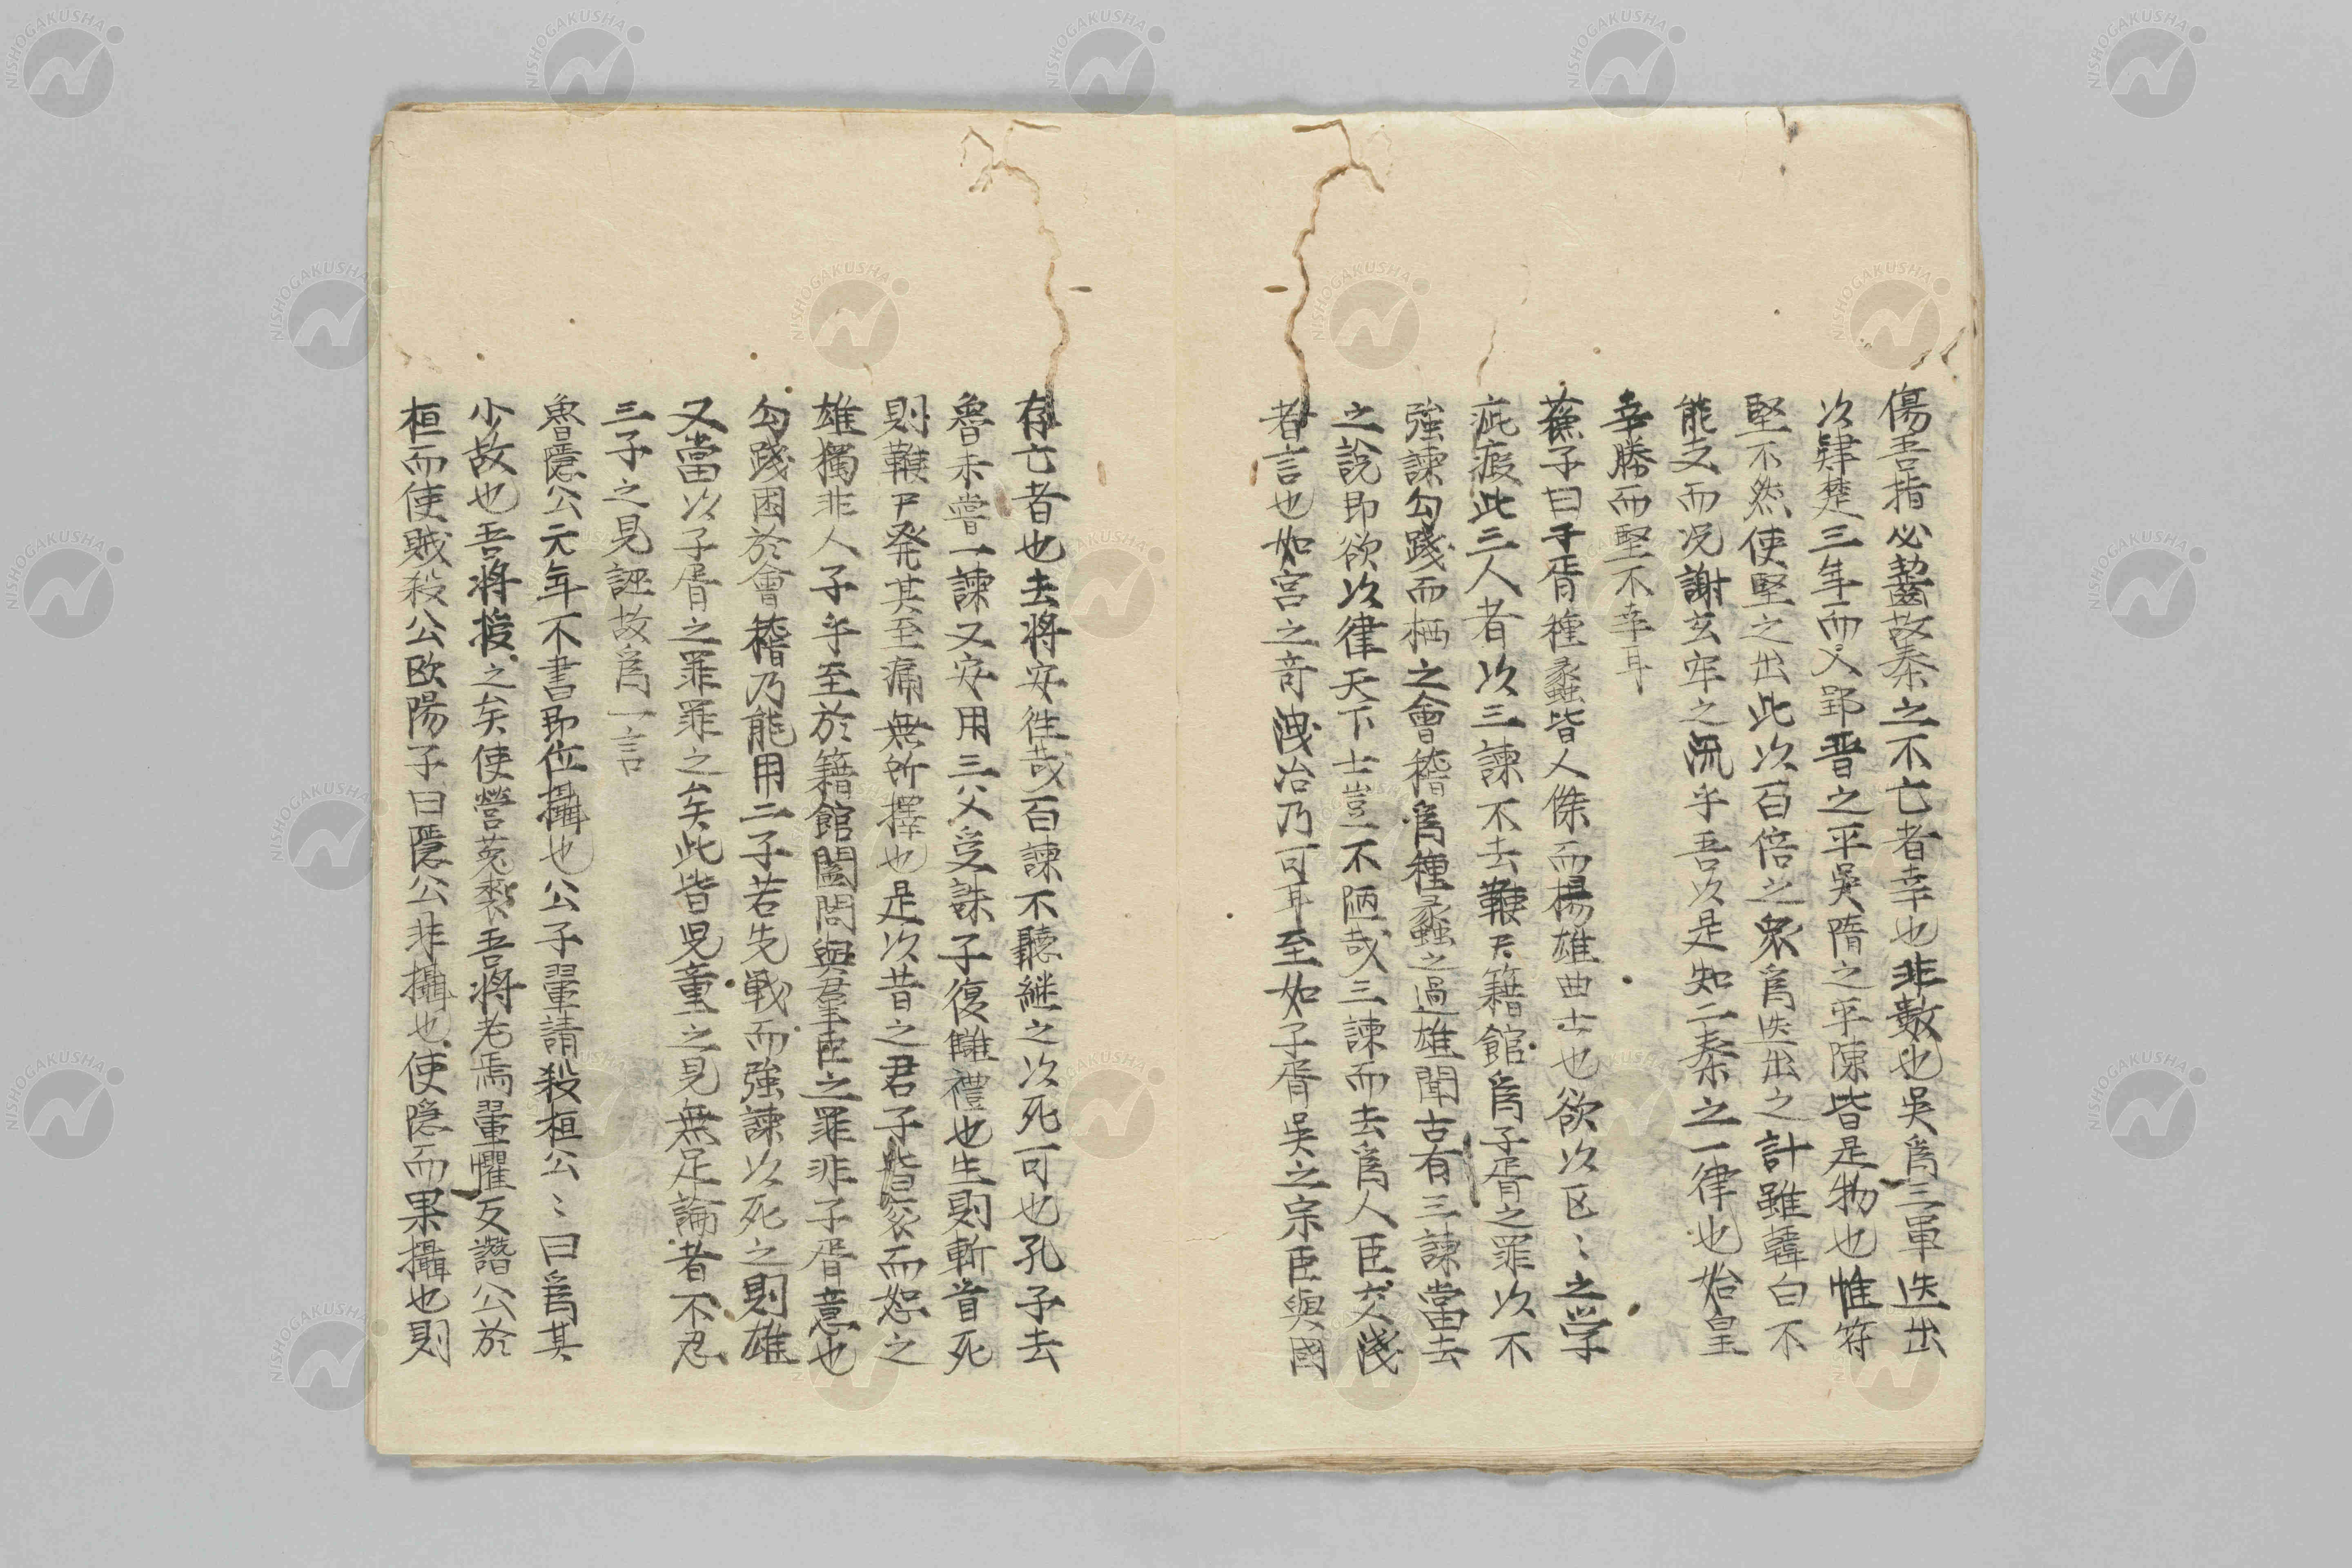 傷吾指必齧故秦之不亡者幸也非數也吳爲三軍迭出
以肄楚三年而入郢晋之平吳隋之平陳皆是物也惟苻
堅不然使堅之出此以百倍之衆爲迭出之計雖韓白不
能支而况謝玄牢之流乎吾以是知二秦之一律也始皇
幸勝而堅不幸耳
蘇子曰子胥種蠡皆人傑而楊雄曲士也欲以区〻之学
疵瘕此三人者以三諫不去鞭尸籍館爲子胥之罪以不
強諫勾踐而栖之會稽爲種蠡之過雄聞古有三諫當去
之說即欲以律天下士豈不陋哉三諫而去爲人臣交淺
者言也如宮之奇洩冶乃可耳至如子胥吳之宗臣與國
存亡者也去將安徃哉百諫不聽継之以死可也孔子去
魯未嘗一諫又安用三父受誅子復讎禮也生則斬首死
則鞭尸発其至痛無所擇也是以昔之君子皆哀而恕之
雄獨非人子乎至於籍館闔閭與羣臣之罪非子胥意也
勾踐困於會稽乃能用二子若先戰而強諫以死之則雄
又當以子胥之罪罪之矣此皆児童之見無足論者不忍
三子之見誣故爲一言
魯隱公元年不書即位攝也公子翬請殺桓公〻曰爲其
少故也吾將授之矣使營菟裘吾將老焉翬懼反譖公於
桓而使賊殺公欧陽子曰隱公非攝也使隐而果攝也則
NISHOGAKUSHA